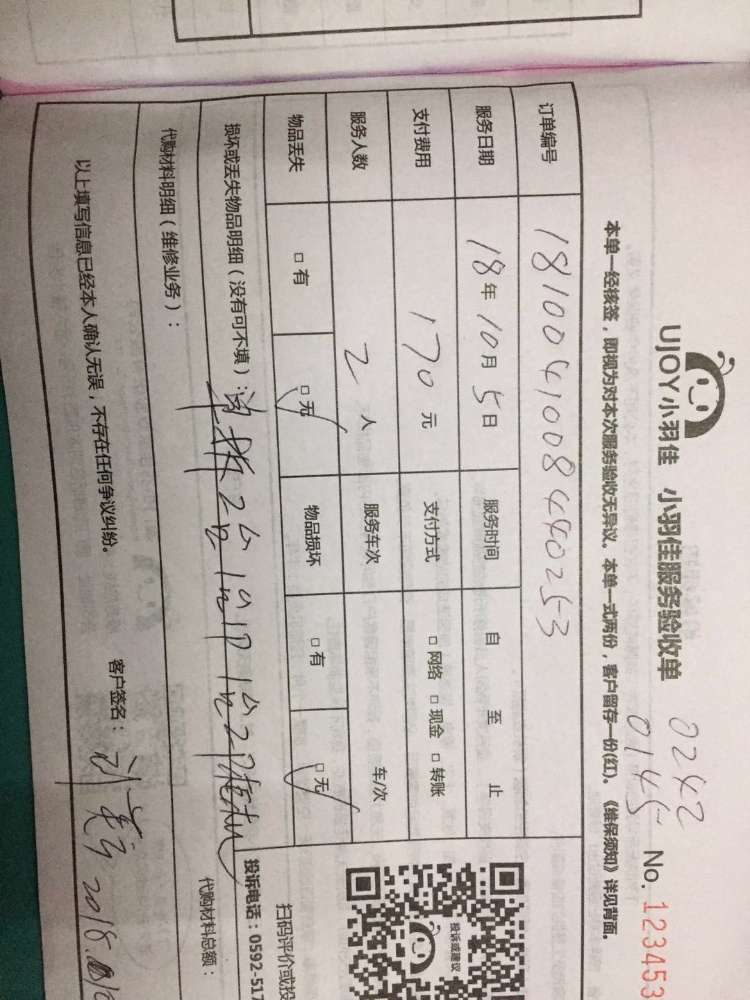 UJOY小羽佳 小羽佳服务验收单
0242
0145
No. 123453
本单一经核签，即视为对本次服务验收无异议。本单一式两份，客户留存一份(红)。《维保须知》详见背面。
订单编号 181004100844025-3
服务日期 18年10月5日 服务时间 自 至 止
支付费用 170元 支付方式 □网络 □现金 □转账
服务人数 2人 服务车次 车/次
物品丢失 □有 □无 物品损坏 □有 □无
损坏或丢失物品明细（没有可不填）：
代购材料明细（维修业务）：
代购材料总额：
以上填写信息已经本人确认无误，不存在任何争议纠纷。
客户签名： 2018.
投诉或建议
扫码评价或投
投诉电话：0592-517